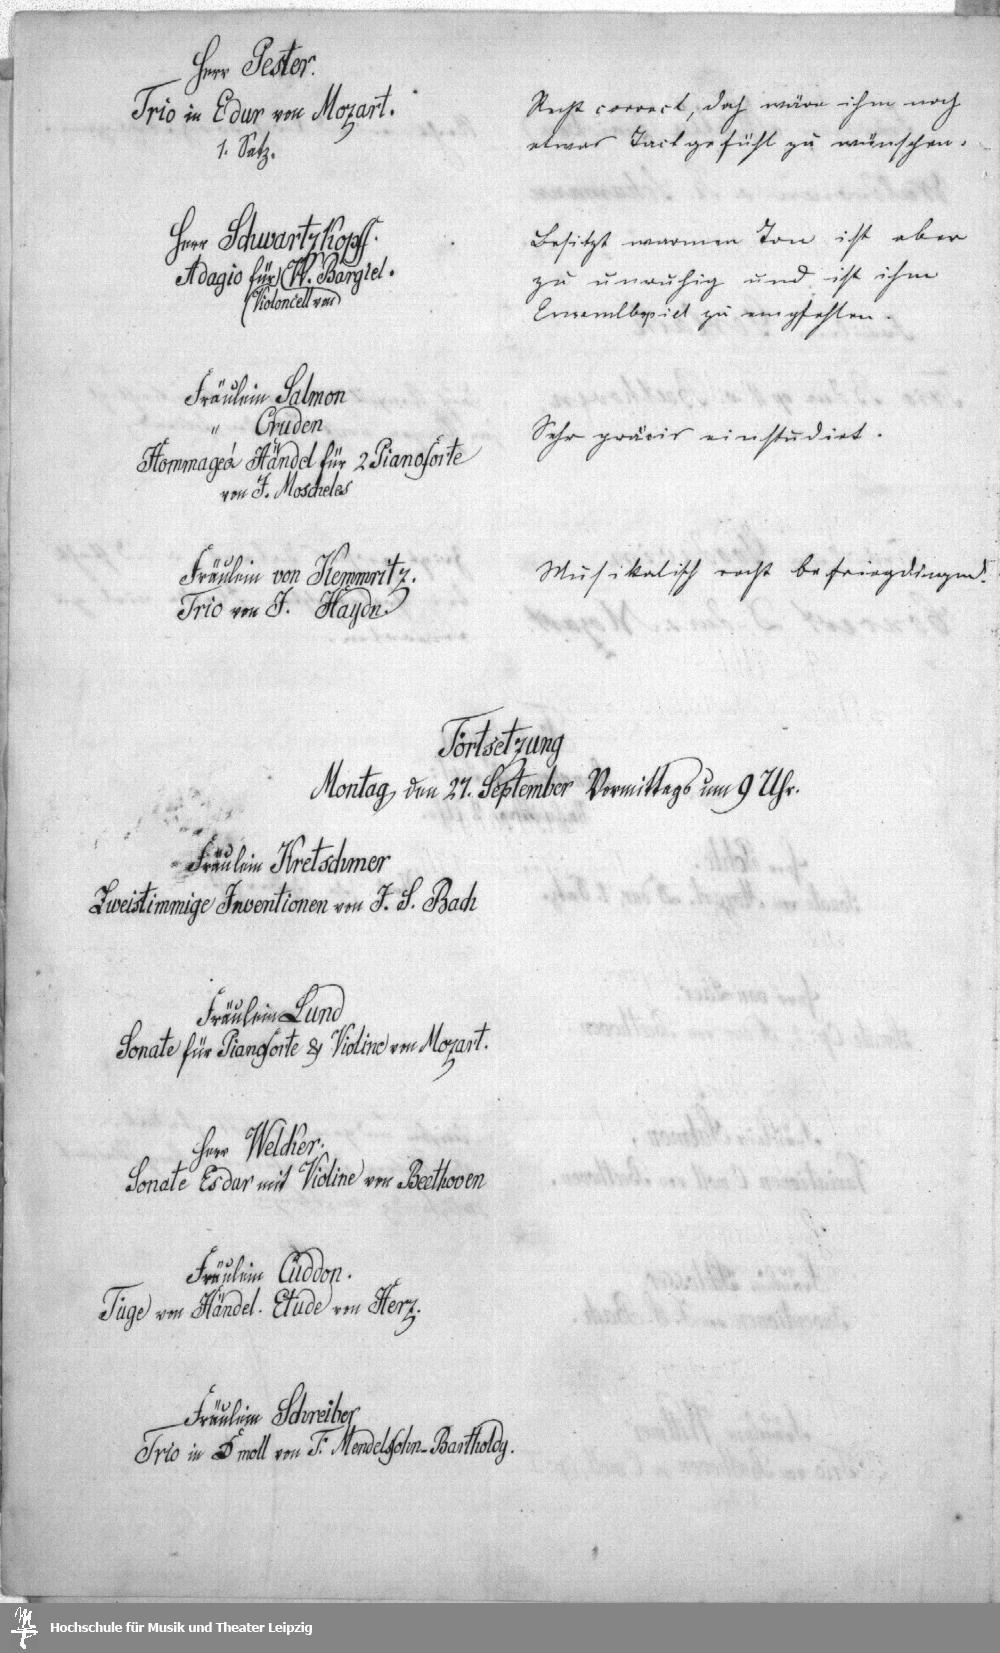 Herr Pester.
Trio in Edur von Mozart.
1. Satz.
Recht correct, doch wäre ihm noch
etwas Tactgefühl zu wünschen.
Herr Schwartzkopff.
Adagio für W. Bargiel.
(Violoncell von)
Besitzt warmen Ton ist aber
zu unruhig und ist ihm
zu empfehlen.
Fräulein Salmon
" Cruden
Hommage á Händel für 2 Pianoforte
von J. Moscheles
Sehr präcis einstudirt.
Fräulein von Kemmritz.
Trio von J. Haydn.
Musikalisch recht
Fortsetzung
Montag, den 27. September Vormittags um 9 Uhr.
Fräulein Kretschmer
Zweistimmige Inventionen von J. S. Bach
Fräulein Lund
Sonate für Pianoforte & Violine von Mozart.
Herr Welcker.
Sonate Esdur mit Violine von Beethoven
Fräulein Cuddon.
Fuge von Händel. Etude von Herz.
Fräulein Schreiber
Trio in moll von F. Mendelsohn-Bartholdy.
Hochschule für Musik und Theater Leipzig